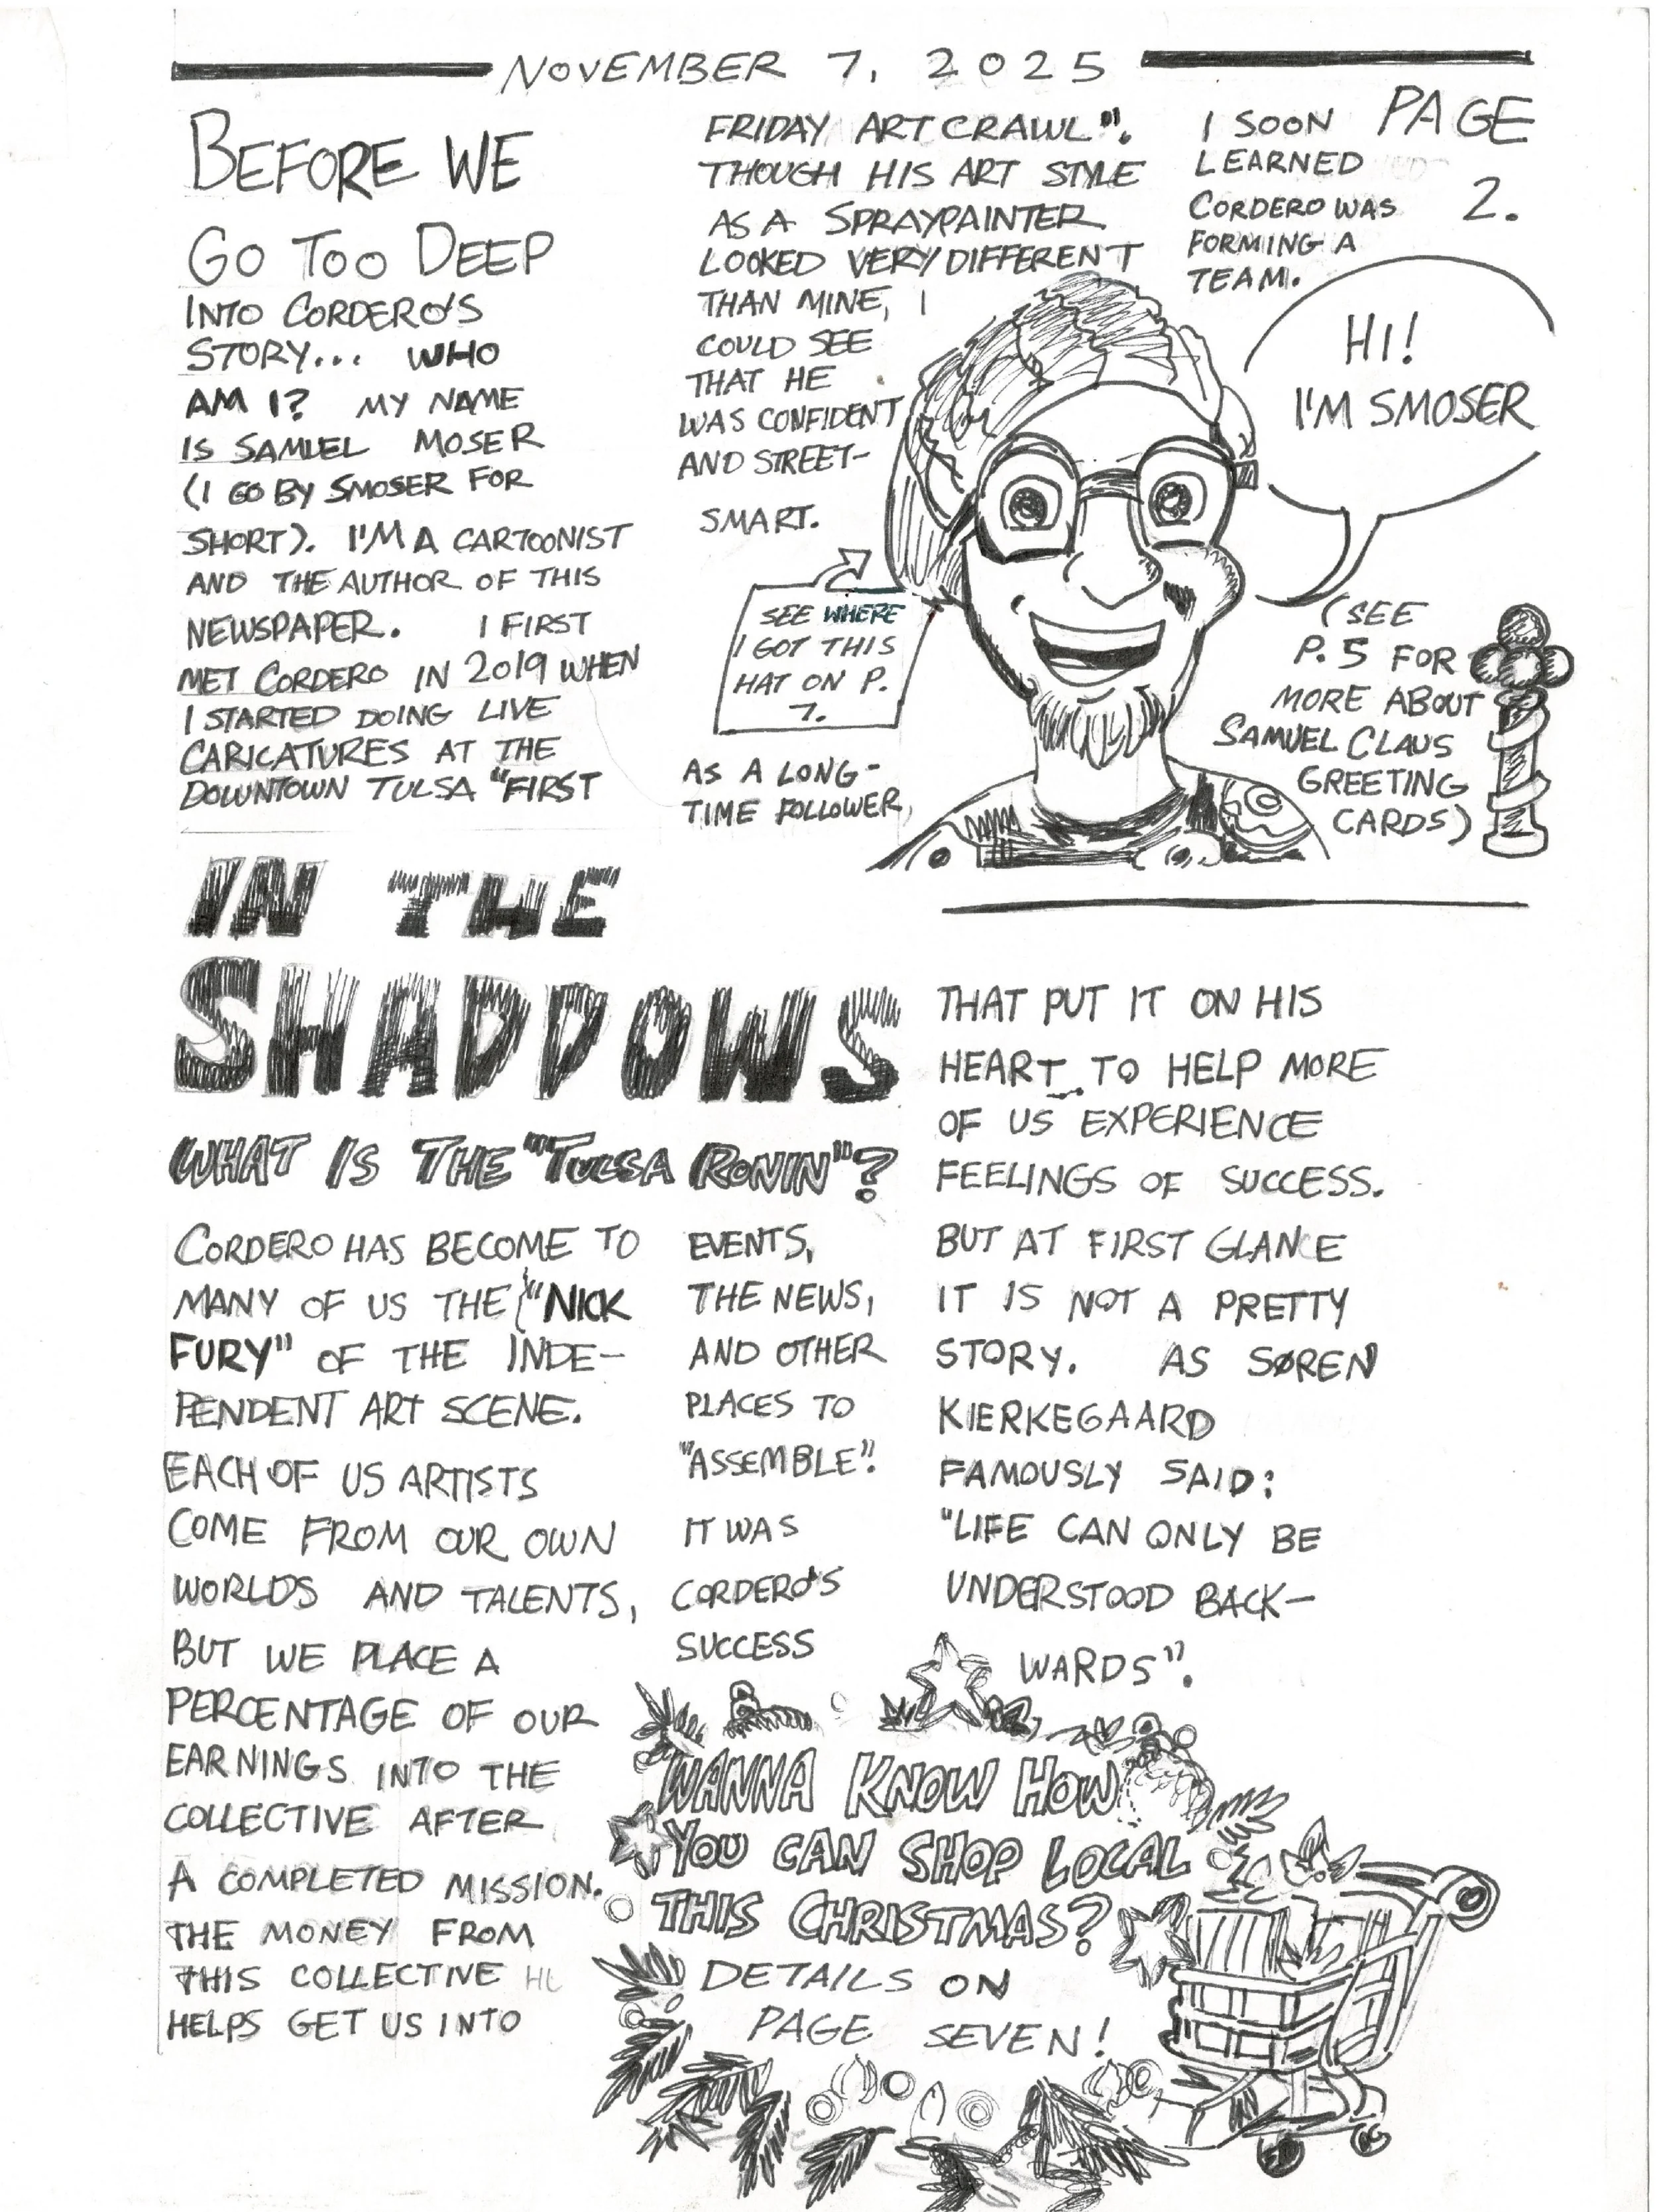 NOVEMBER 7, 2025
PAGE
2.
BEFORE WE
GO TOO DEEP
INTO CORDERO'S
STORY... WHO
AM I? MY NAME
IS SAMUEL MOSER
(I GO BY SMOSER FOR
SHORT). I'M A CARTOONIST
AND THE AUTHOR OF THIS
NEWSPAPER. I FIRST
MET CORDERO IN 2019 WHEN
I STARTED DOING LIVE
CARICATURES AT THE
DOWNTOWN TULSA "FIRST
FRIDAY ART CRAWL".
THOUGH HIS ART STYLE
AS A SPRAYPAINTER
LOOKED VERY DIFFERENT
THAN MINE, I
COULD SEE
THAT HE
WAS CONFIDENT
AND STREET-
SMART.
SEE WHERE
I GOT THIS
HAT ON P.
7.
AS A LONG-
TIME FOLLOWER,
I SOON
LEARNED
CORDERO WAS
FORMING A
TEAM.
HI!
I'M SMOSER
(SEE
P. 5 FOR
MORE ABOUT
SAMUEL CLAUS
GREETING
CARDS)
IN THE
SHADDOWS
WHAT IS THE "TULSA RONIN"?
CORDERO HAS BECOME TO
MANY OF US THE "NICK
FURY" OF THE INDE-
PENDENT ART SCENE.
EACH OF US ARTISTS
COME FROM OUR OWN
WORLDS AND TALENTS,
BUT WE PLACE A
PERCENTAGE OF OUR
EARNINGS INTO THE
COLLECTIVE AFTER
A COMPLETED MISSION.
THE MONEY FROM
THIS COLLECTIVE
HELPS GET US INTO
EVENTS,
THE NEWS,
AND OTHER
PLACES TO
"ASSEMBLE".
IT WAS
CORDERO'S
SUCCESS
THAT PUT IT ON HIS
HEART TO HELP MORE
OF US EXPERIENCE
FEELINGS OF SUCCESS.
BUT AT FIRST GLANCE
IT IS NOT A PRETTY
STORY. AS SØREN
KIERKEGAARD
FAMOUSLY SAID:
"LIFE CAN ONLY BE
UNDERSTOOD BACK-
WARDS".
WANNA KNOW HOW
YOU CAN SHOP LOCAL
THIS CHRISTMAS?
DETAILS ON
PAGE SEVEN!